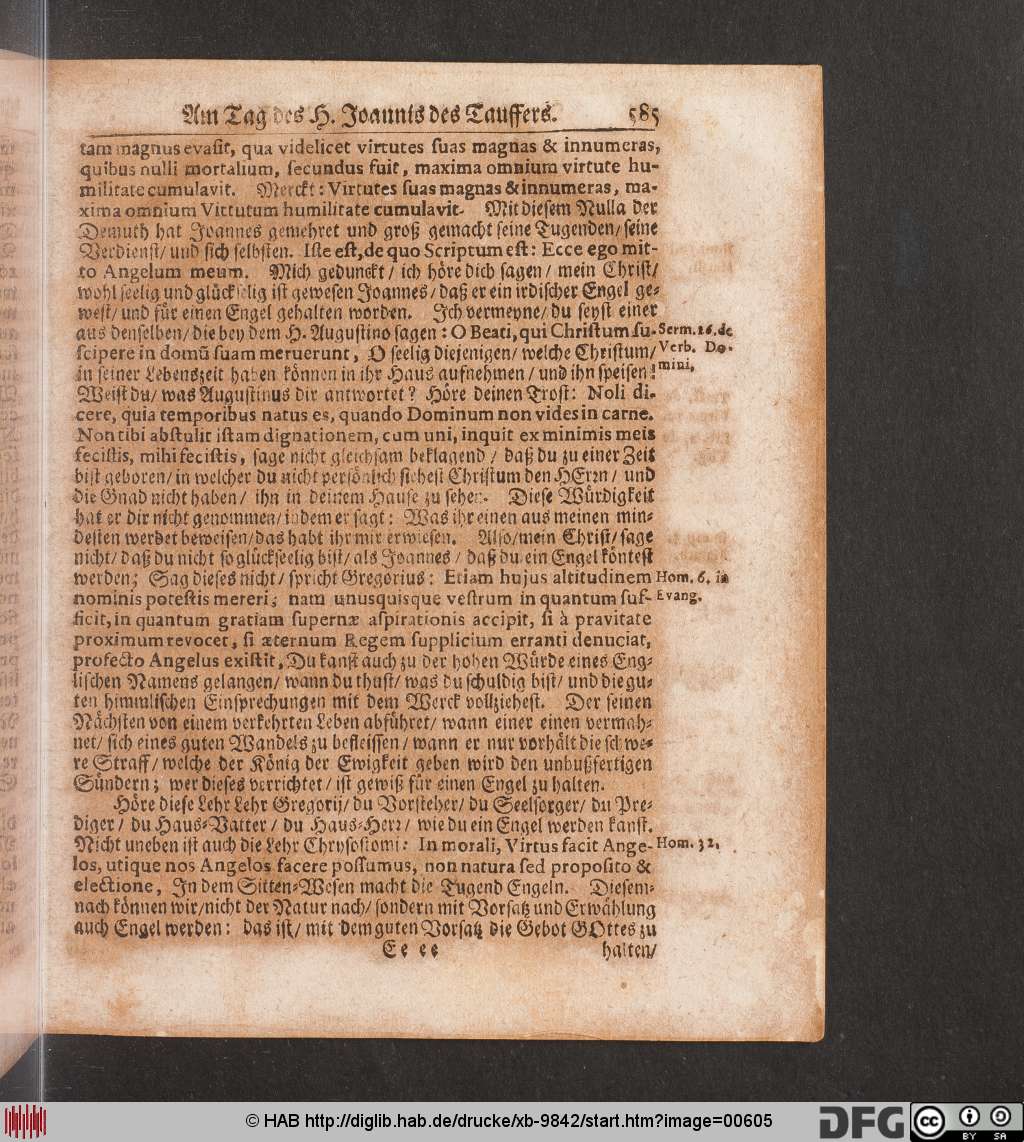 Am Tag des H. Joannis des Tauffers. 585
tam magnus evasit, qua videlicet virtutes suas magnas & innumeras,
quibus nulli mortalium, secundus fuit, maxima omnium virtute hu-
militate cumulavit. Merckt: Virtutes suas magnas & innumeras, ma-
xima omnium Virtutum humilitate cumulavit. Mit diesem Nulla der
Demuth hat Joannes gemehret und groß gemacht seine Tugenden/ seine
Verdienst/ und sich selbsten. Iste est, de quo Scriptum est: Ecce ego mit-
to Angelum meum. Mich gedunckt/ ich höre dich sagen/ mein Christ/
wohl seelig und glückselig ist gewesen Joannes/ daß er ein irdischer Engel ge-
west/ und für einen Engel gehalten worden. Ich vermeyne/ du seyst einer
aus denselben/ die bey dem H. Augustino sagen: O Beati, qui Christum su-
scipere in domũ suam meruerunt, O seelig diejenigen/ welche Christum/
in seiner Lebenszeit haben können in ihr Haus aufnehmen/ und ihn speisen!
Serm. 26. de
Verb. Do-
mini,
Weist du/ was Augustinus dir antwortet? Höre deinen Trost: Noli di-
cere, quia temporibus natus es, quando Dominum non vides in carne.
Non tibi abstulit istam dignationem, cum uni, inquit ex minimis meis
fecistis, mihi fecistis, sage nicht gleichsam beklagend/ daß du zu einer Zeit
bist geboren/ in welcher du nicht persönlich siehest Christum den HErrn/ und
die Gnad nicht haben/ ihn in deinem Hause zu sehen. Diese Würdigkeit
hat er dir nicht genommen/ indem er sagt: Was ihr einen aus meinen min-
desten werdet beweisen/ das habt ihr mir erwiesen. Also/ mein Christ/ sage
nicht/ daß du nicht so glückseelig bist/ als Joannes/ daß du ein Engel köntest
werden; Sag dieses nicht/ spricht Gregorius: Etiam hujus altitudinem
nominis potestis mereri; nam unusquisque vestrum in quantum suf-
Hom. 6. in
Evang.
ficit, in quantum gratiam supernæ aspirationis accipit, si à pravitate
proximum revocet, si æternum Regem supplicium erranti denuciat,
profecto Angelus existit, Du kanst auch zu der hohen Würde eines Eng-
lischen Namens gelangen/ wann du thust/ was du schuldig bist/ und die gu-
ten himmlischen Einsprechungen mit dem Werck vollziehest. Der seinen
Nächsten von einem verkehrten Leben abführet/ wann einer einen vermah-
net/ sich eines guten Wandels zu befleissen/ wann er nur vorhält die schwe-
re Straff/ welche der König der Ewigkeit geben wird den unbußfertigen
Sündern; wer dieses verrichtet/ ist gewiß für einen Engel zu halten.
Höre diese Lehr Lehr Gregorij/ du Vorsteher/ du Seelsorger/ du Pre-
diger/ du Haus-Vatter/ du Haus-Herr/ wie du ein Engel werden kanst.
Nicht uneben ist auch die Lehr Chrysostomi: In morali, Virtus facit Ange-
Hom. 32,
los, utique nos Angelos facere possumus, non natura sed proposito &
electione, In dem Sitten-Wesen macht die Tugend Engeln. Diesem-
nach können wir/ nicht der Natur nach/ sondern mit Vorsatz und Erwählung
auch Engel werden: das ist/ mit dem guten Vorsatz die Gebot GOttes zu
Ee ee halten/
© HAB http://diglib.hab.de/drucke/xb-9842/start.htm?image=00605
DFG
cc BY SA